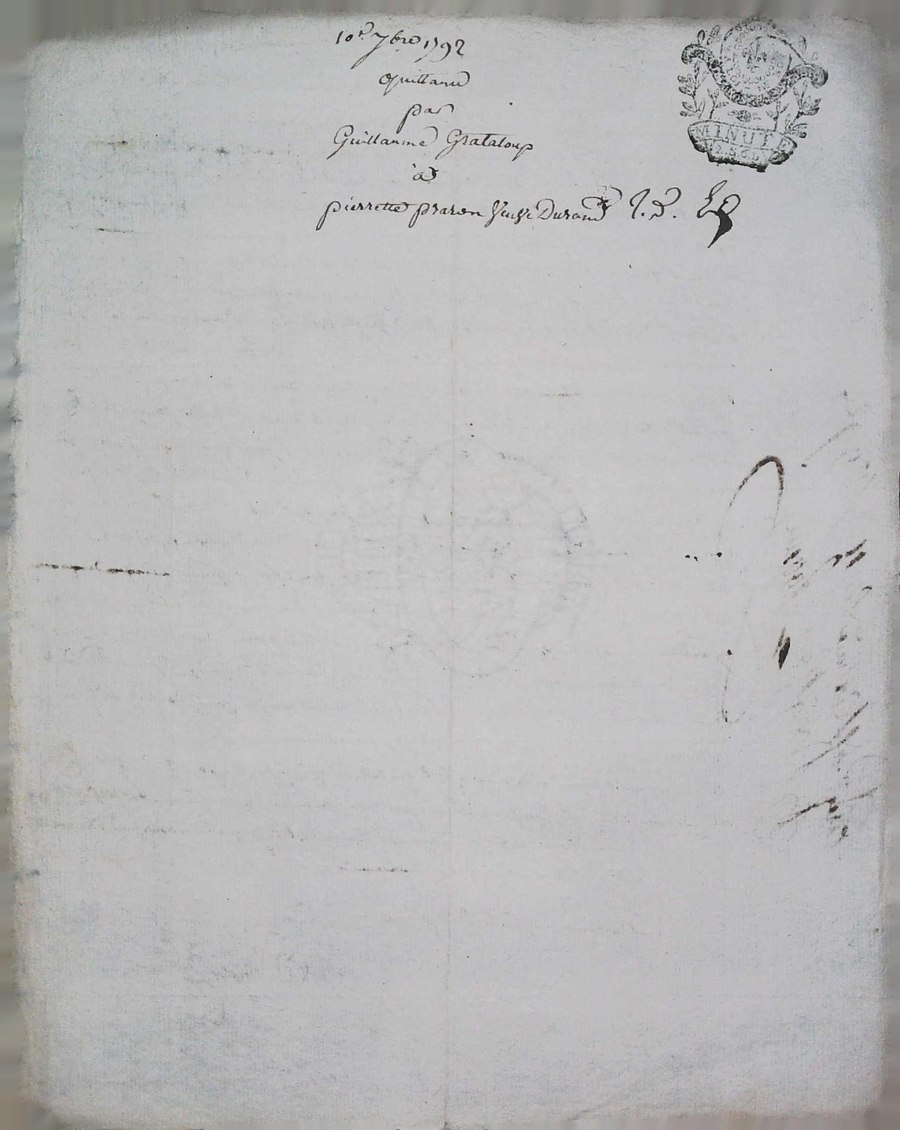 10e 7bre 1792
Quittance
par
Guillaume Grataloup
à
pierrette praron Veuve Durand
MINUTE